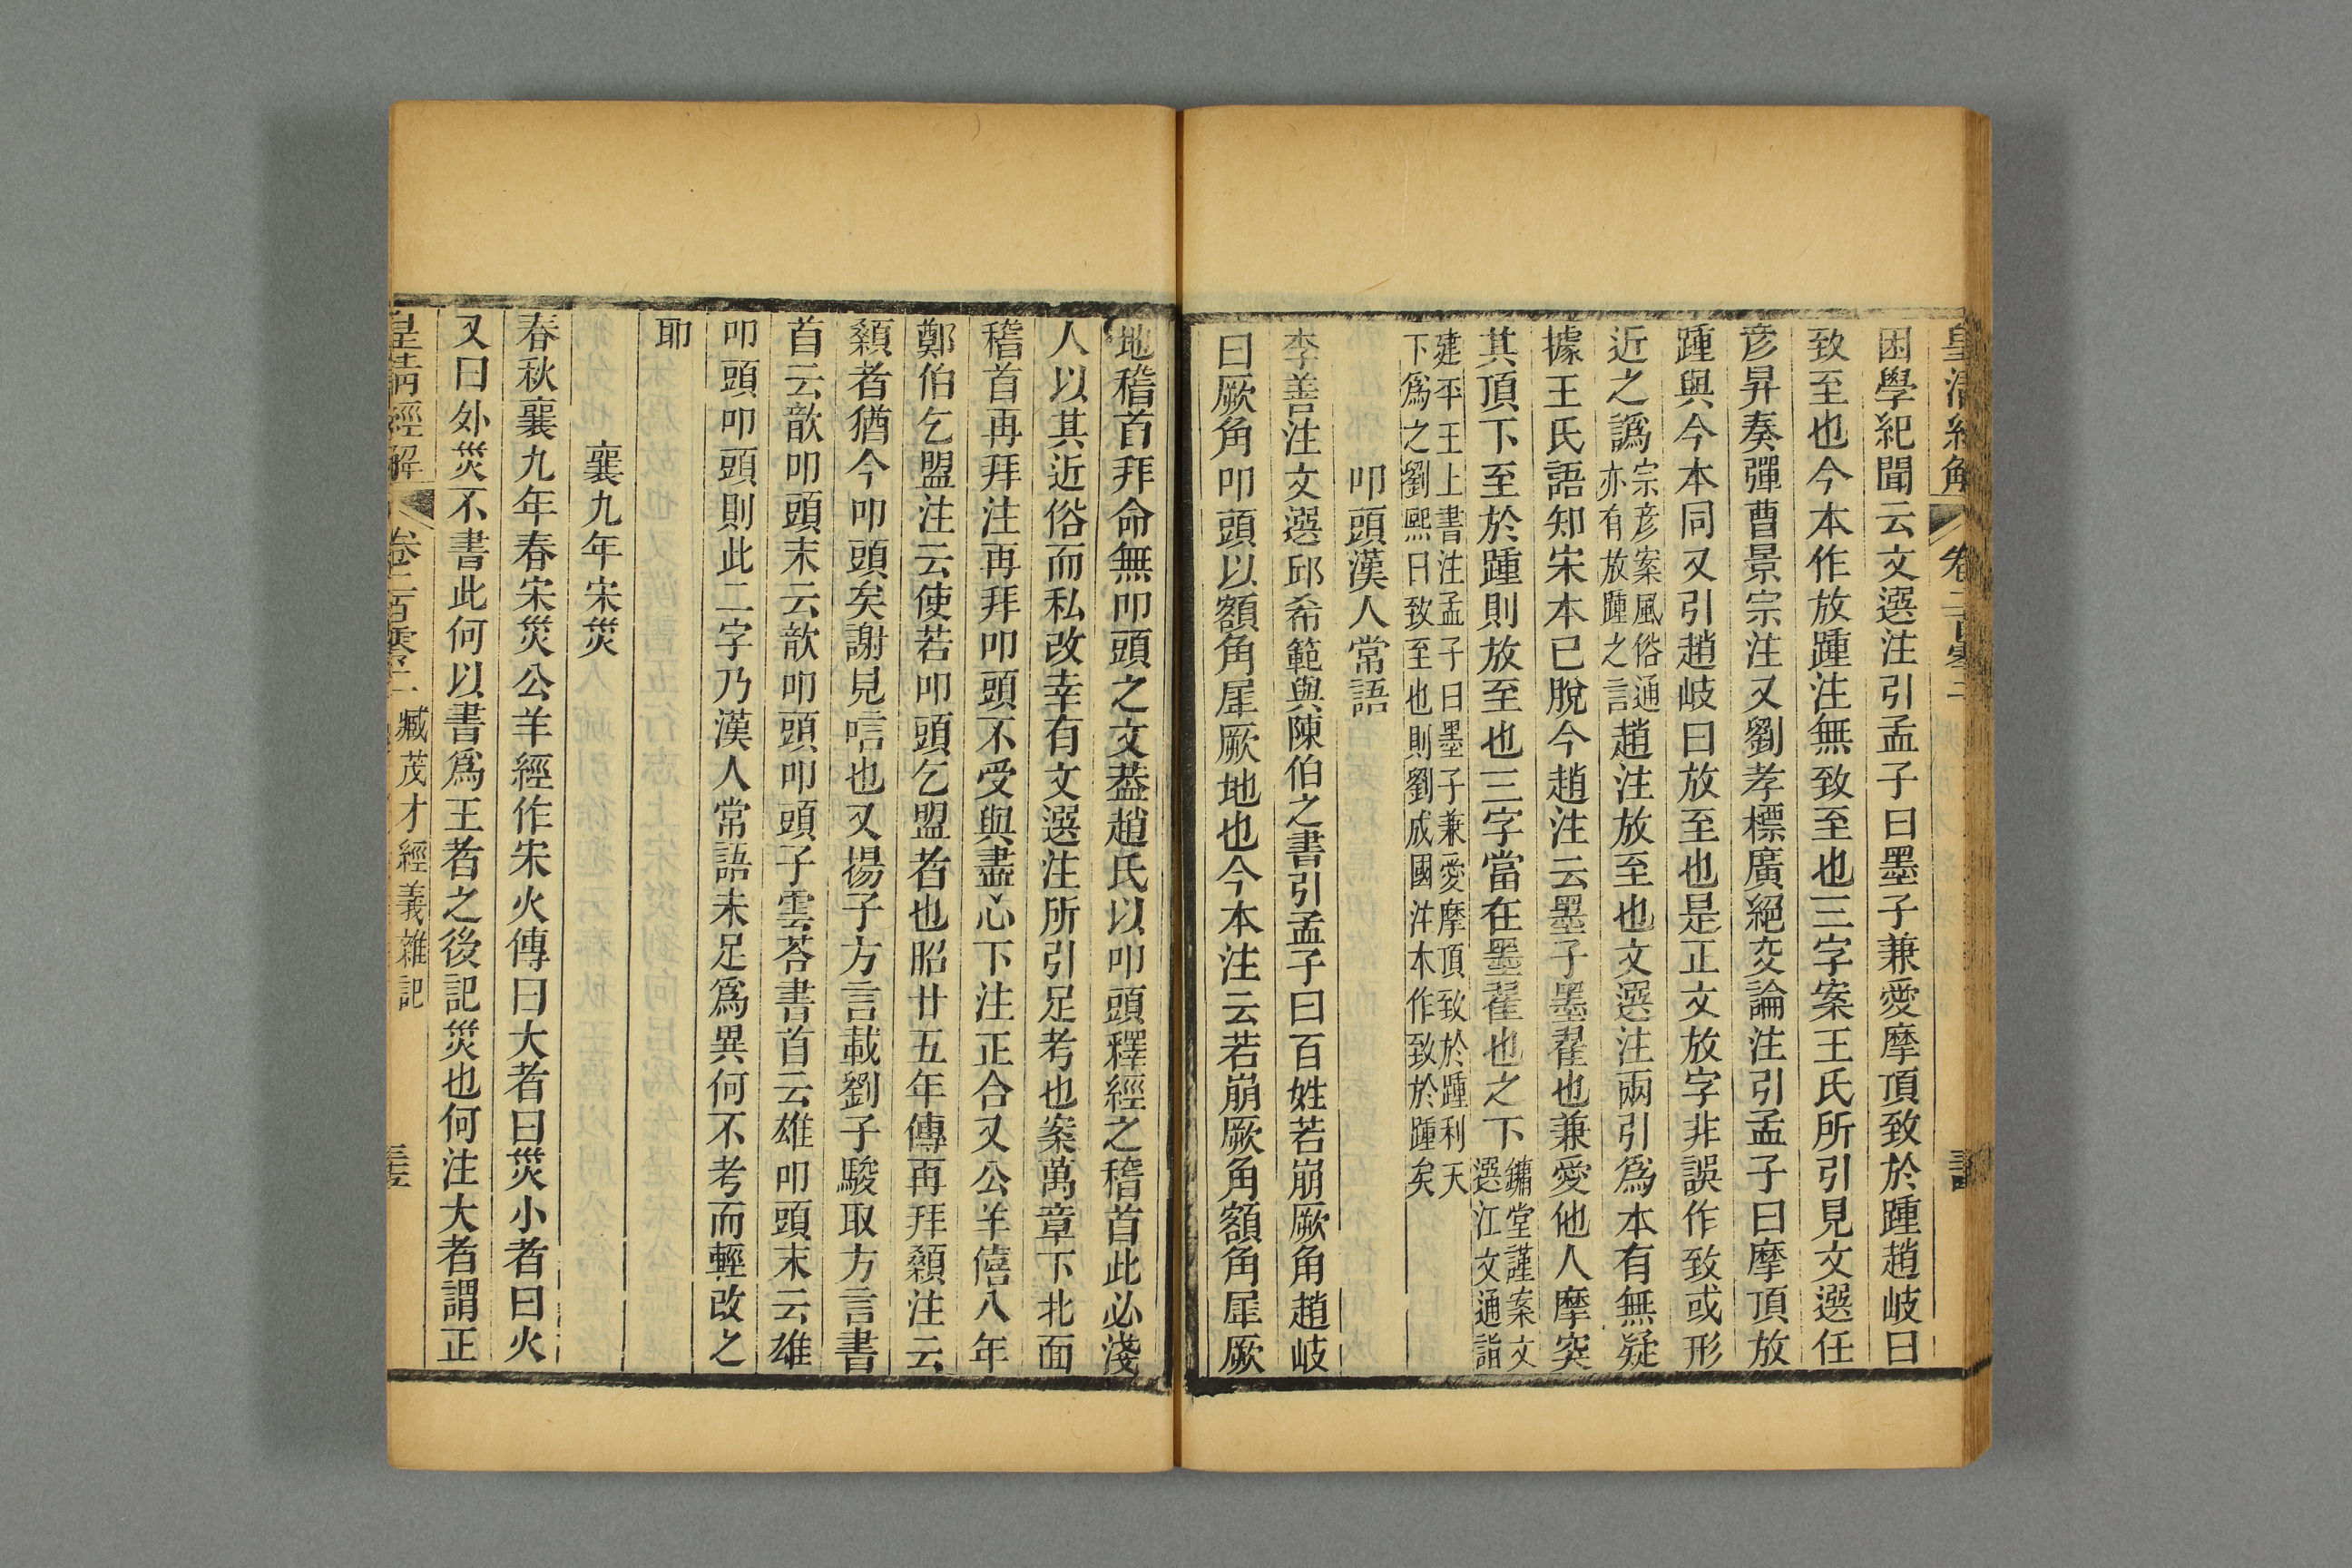 皇清經解 卷二百零二
困學紀聞云文選注引孟子曰墨子兼愛摩頂致於踵趙岐曰
致至也今本作放踵注無致至也三字案王氏所引見文選任
彥昇奏彈曹景宗注又劉孝標廣絕交論注引孟子曰摩頂放
踵與今本同又引趙岐曰放至也是正文放字非誤作致或形
近之譌宗彥案風俗通亦有放踵之言趙注放至也文選注兩引爲本有無疑
據王氏語知宋本已脫今趙注云墨子墨翟也兼愛他人摩突
其頂下至於踵則放至也三字當在墨翟也之下鏞堂謹案文選江文通詣
建平王上書注孟子曰墨子兼愛摩頂致於踵利天
下爲之劉熙曰致至也則劉成國注本作致於踵矣
叩頭漢人常語
李善注文選邱希範與陳伯之書引孟子曰百姓若崩厥角趙岐
曰厥角叩頭以額角犀厥地也今本注云若崩厥角額角犀厥
地稽首拜命無叩頭之文葢趙氏以叩頭釋經之稽首此必淺
人以其近俗而私改幸有文選注所引足考也案萬章下北面
稽首再拜注再拜叩頭不受與盡心下注正合又公羊僖八年
鄭伯乞盟注云使若叩頭乞盟者也昭廿五年傳再拜顙注云
顙者猶今叩頭矣謝見唁也又揚子方言載劉子駿取方言書
首云歆叩頭末云歆叩頭叩頭子雲荅書首云雄叩頭末云雄
叩頭叩頭則此二字乃漢人常語未足爲異何不考而輕改之
耶
襄九年宋災
春秋襄九年春宋災公羊經作宋火傳曰大者曰災小者曰火
又曰外災不書此何以書爲王者之後記災也何注大者謂正
皇清經解 卷二百零二 臧茂才經義雜記 三五